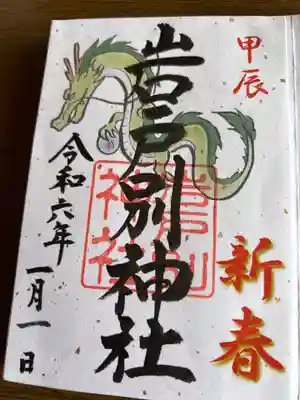 甲辰
新春
岩戸別神社
岩戸別
神社
令和六年
一月一日